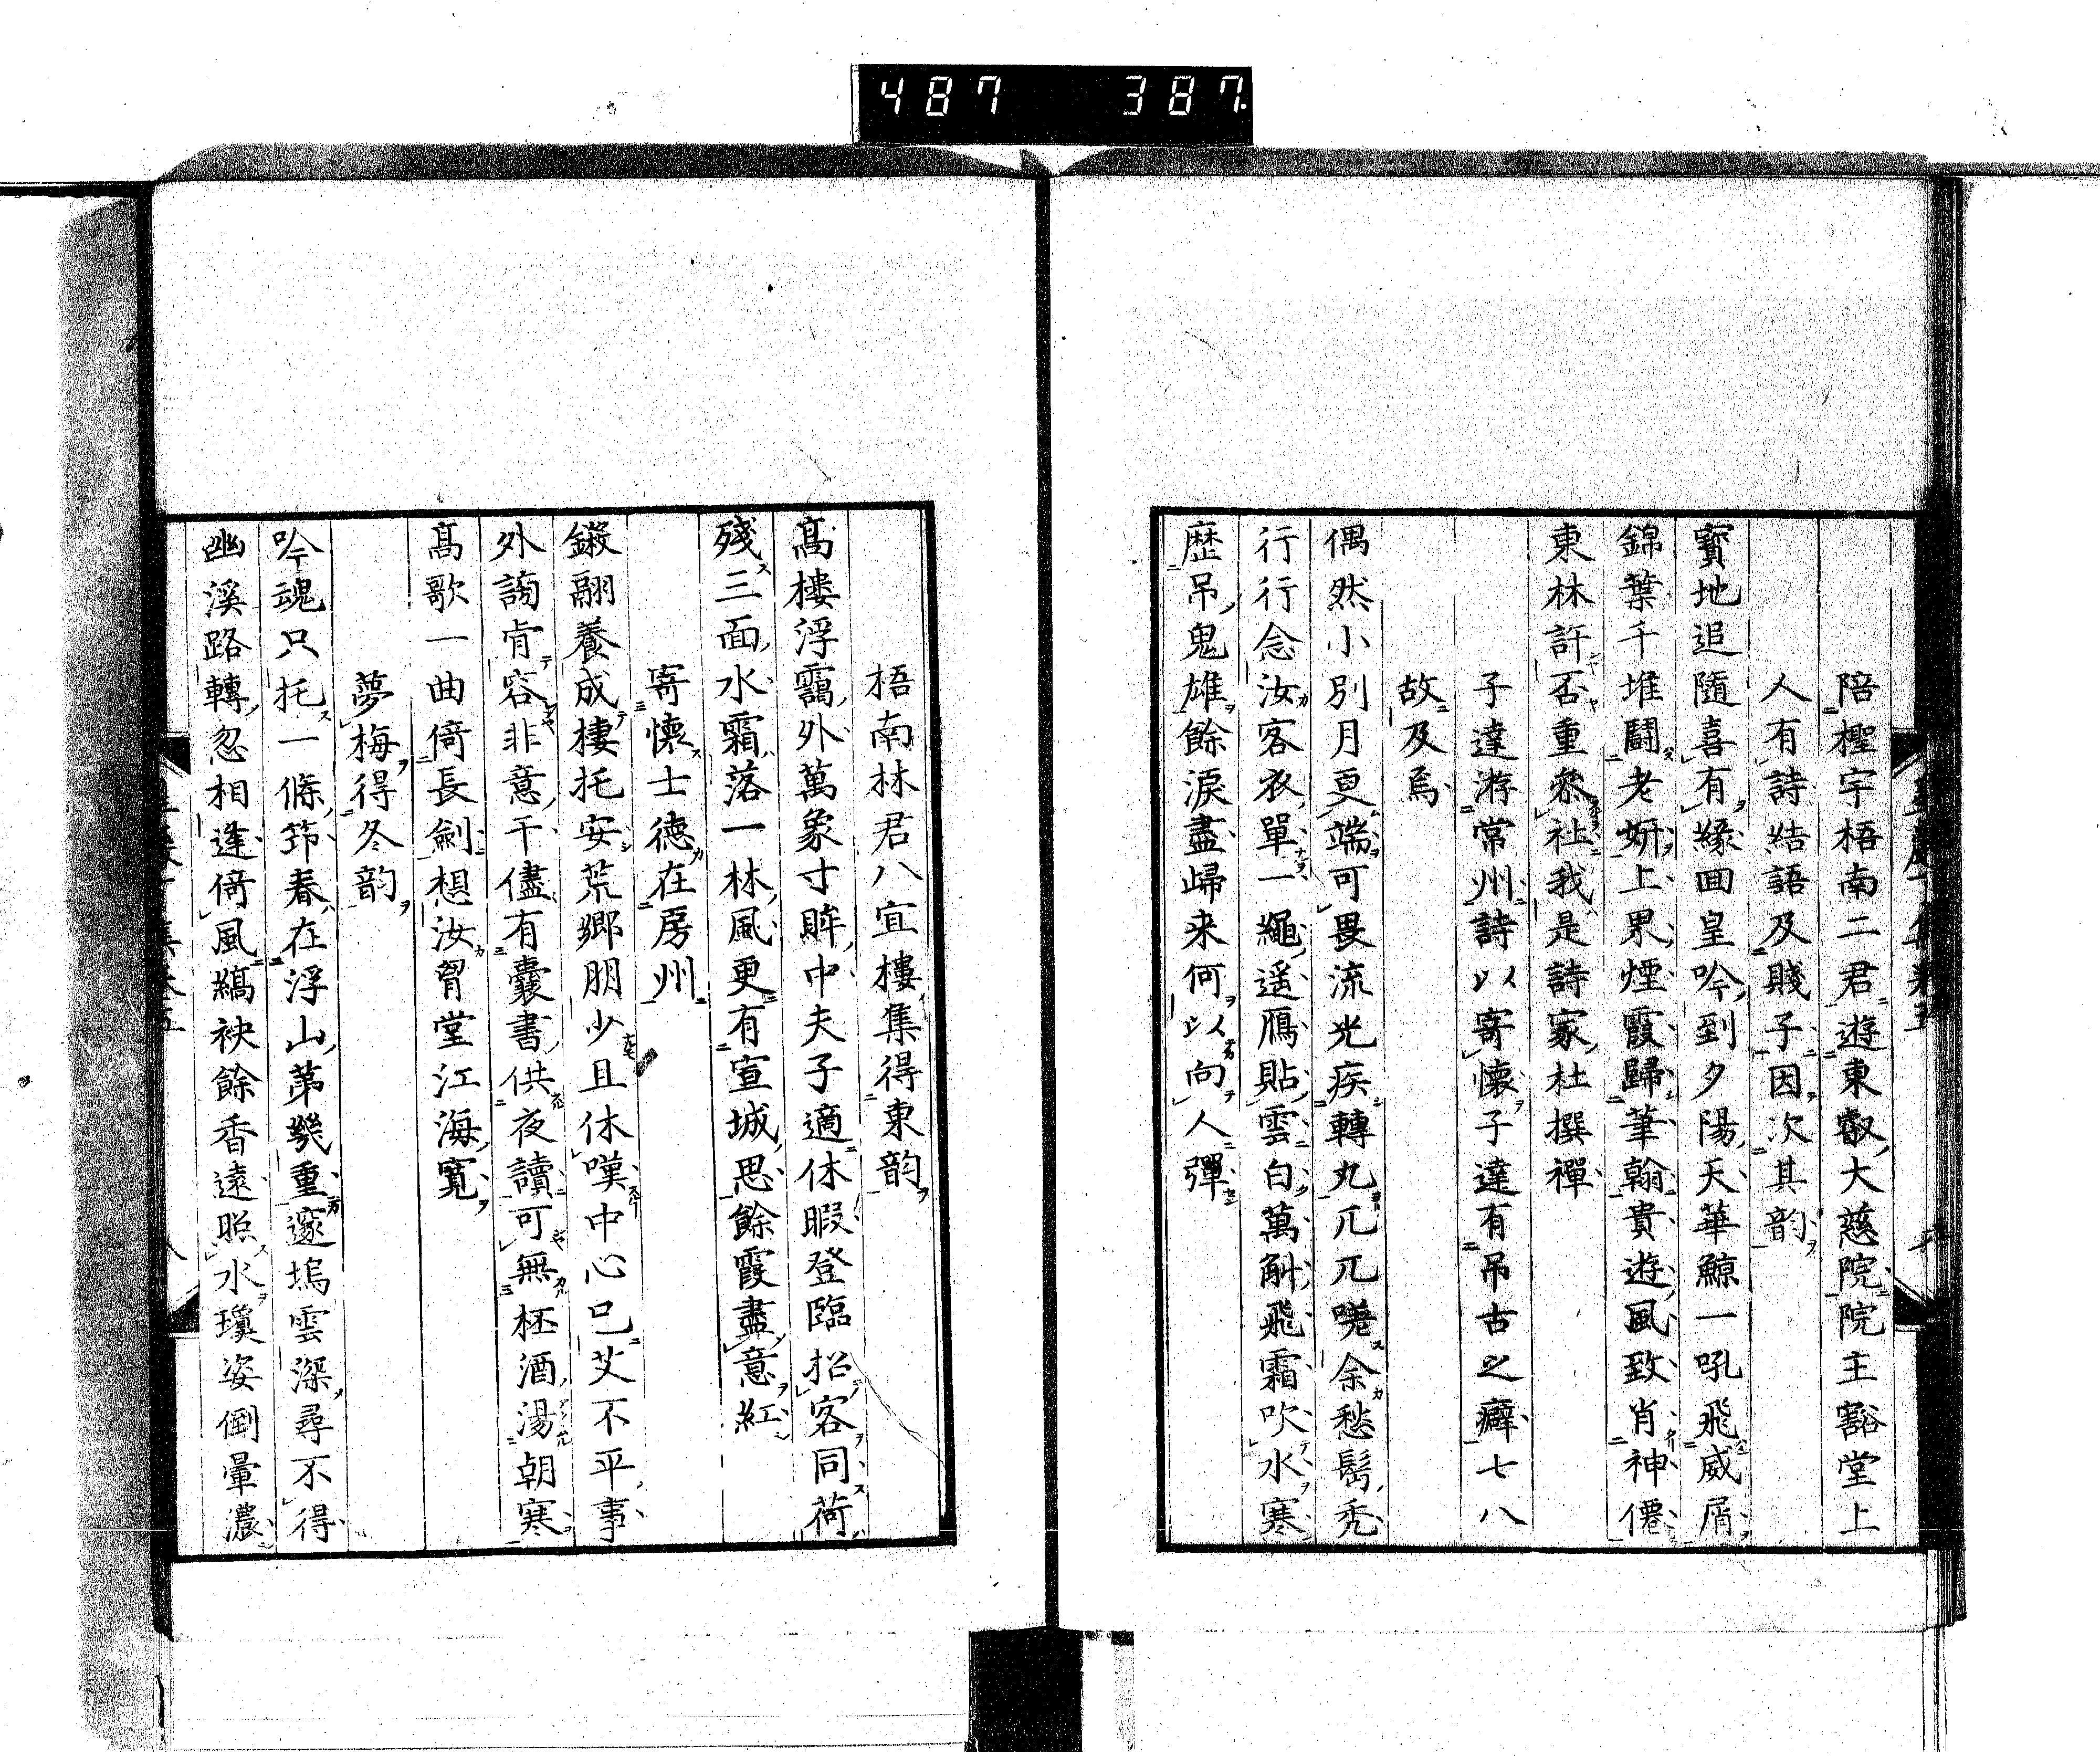 487 387
陪檉宇梧南二君遊東叡大慈院院主豁堂上
人有詩結語及賤子因次其韵
寶地追隨喜有緣囬皇吟到夕陽天華鯨一吼飛威屑
錦葉千堆鬪老妍上界煙霞歸筆翰貴遊風致肖神僊
東林許否重叅社我是詩家杜撰禪
子達游常州詩以寄懐子達有吊古之癖七八
故及焉
偶然小別月更端可畏流光疾轉丸兀兀嗟余愁髩禿
行行念汝客衣單一繩遥鴈貼雲白萬斛飛霜吹水寒
歴吊鬼雄餘淚盡歸来何以向人彈
梧南林君八宜樓集得東韵
髙樓浮靄外萬象寸眸中夫子適休暇登臨招客同荷
殘三面水霜落一林風更有宣城思餘霞盡意紅
寄懐士德在房州
鎩翮養成棲托安荒鄉朋少且休嘆中心已艾不平事
外謗肯容非意干儘有嚢書供夜讀可無柸酒湯朝寒
髙歌一曲倚長劍想汝胷堂江海寛
夢梅得冬韵
吟魂只托一條筇春在浮山第幾重邃塢雲深尋不得
幽溪路轉忽相逢倚風縞袂餘香遠照水瓊姿倒暈濃